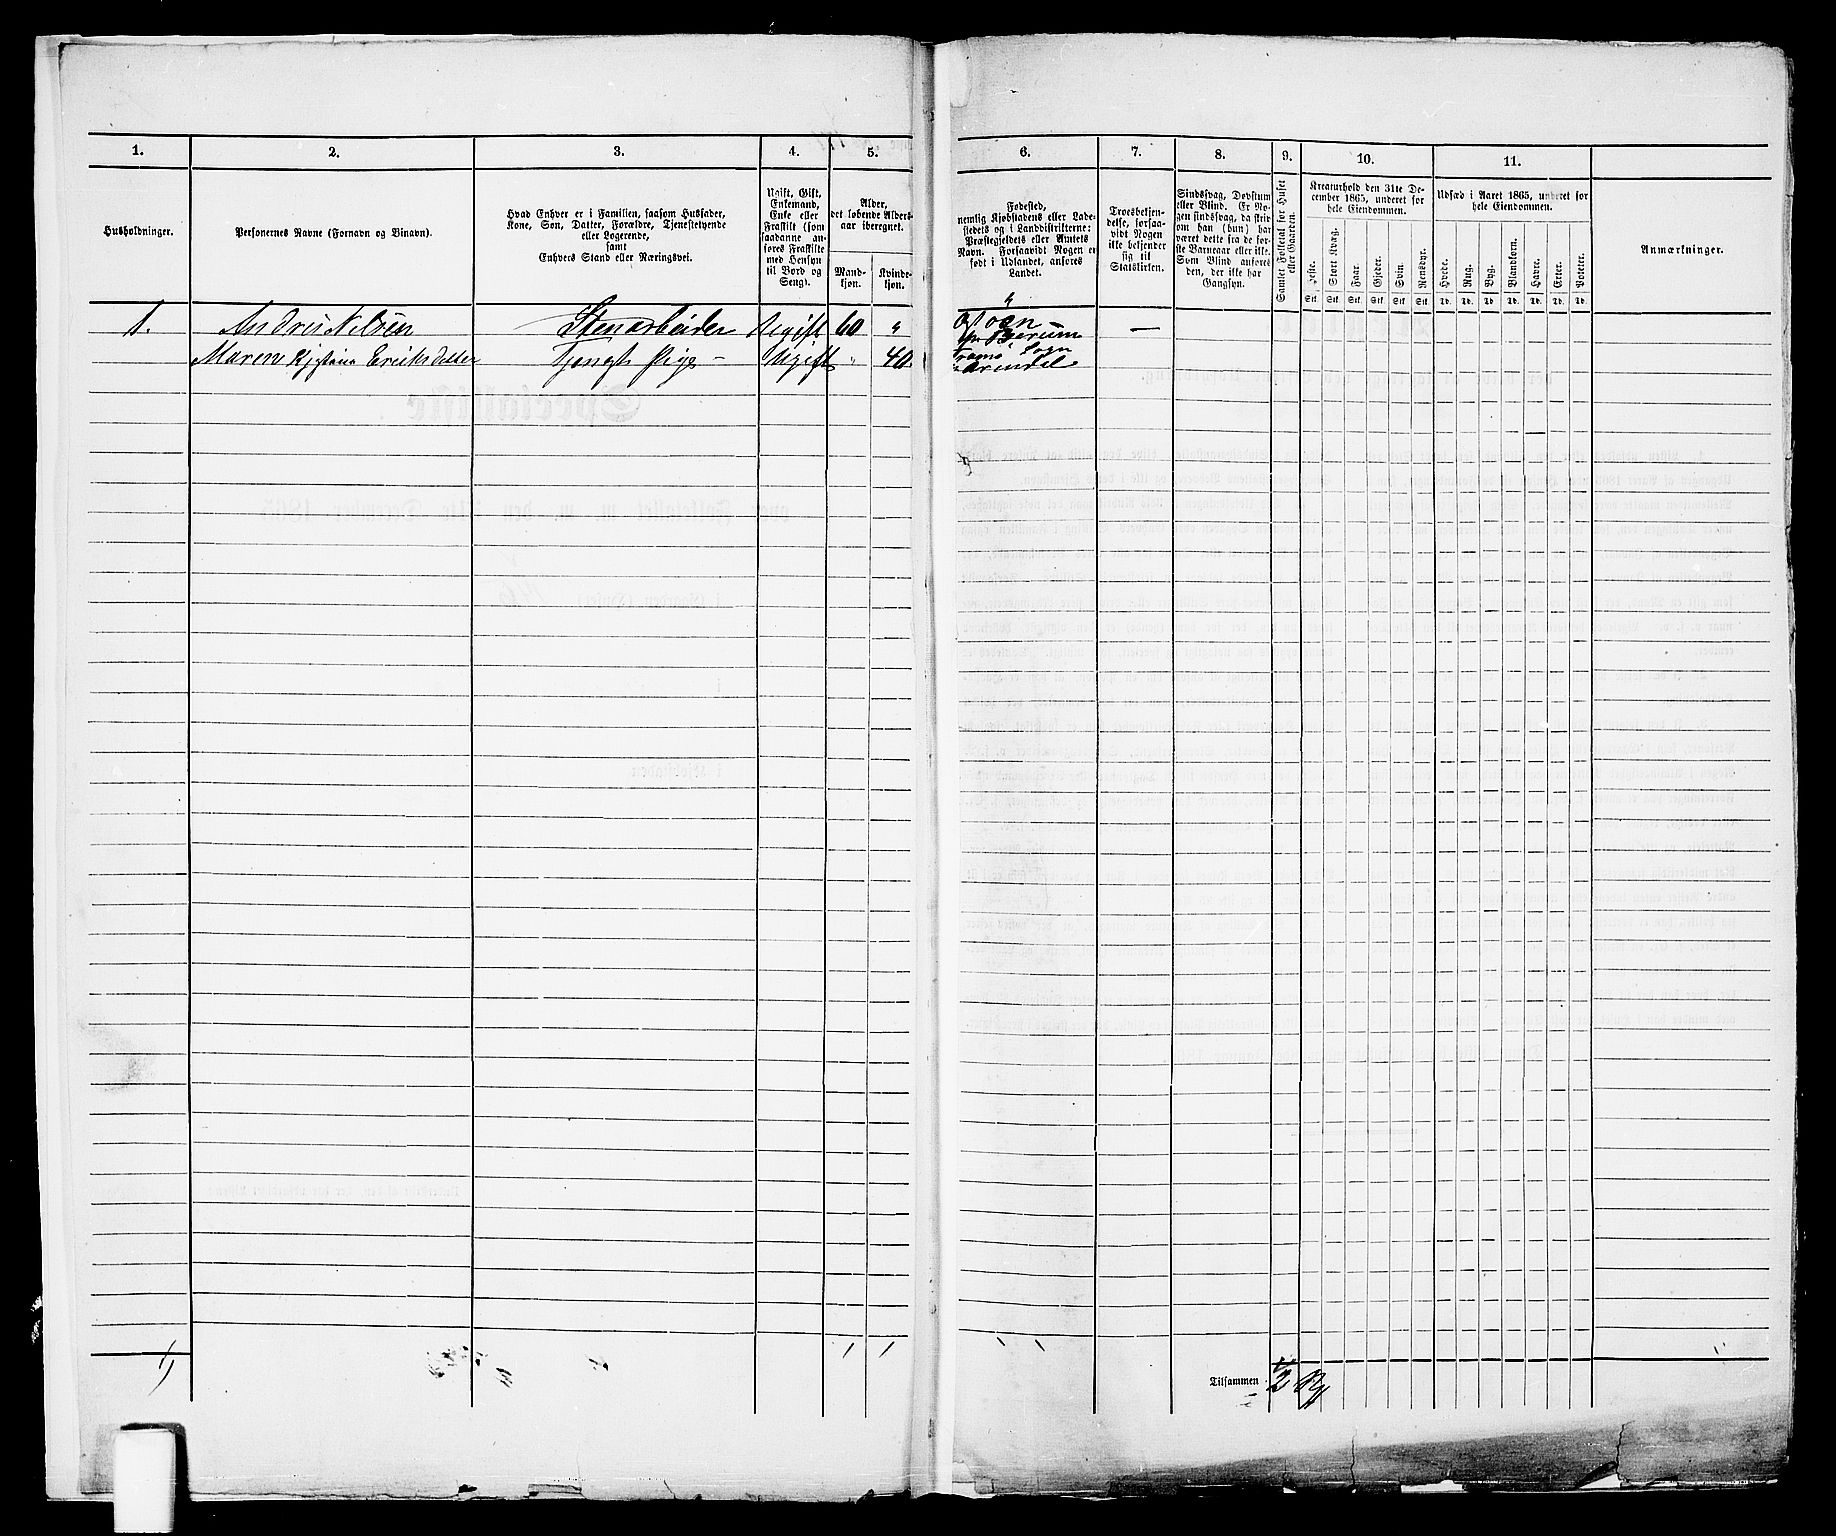 1. 2. 3. 4. 5. 6. 7. 8. 9. 10. 11.
Husholdninger.
Personernes Navne (Fornavn og Binavn).
Hvad Enhver er i Familien, saasom Husfader,
Kone, Søn, Datter, Forældre, Tjenestetyende
eller Logerende,
samt
Enhvers Stand eller Næringsvei.
Ugift, Gift,
Enkemand,
Enke eller
Fraskilt (som
saadanne an-
føres Fraskilte
med Hensyn
til Bord og
Seng).
Alder,
det løbende Alders-
aar iberegnet.
Mand-
kjøn.
Kvinde-
kjøn.
Fødested,
nemlig Kjøbstadens eller Lade-
stedets og i Landdistrikterne:
Præstegjeldets eller Amtets
Navn. Forsaavidt Nogen er
født i Udlandet, anføres
Landet.
Troesbekjen-
delse, forsaa-
vidt Nogen
ikke bekjender
sig til
Statskirken.
Sindssvag, Døvstum
eller Blind. Er No-
gen sindssvag, da skriv
om han (hun) har
været dette fra de før-
ste Barneaar eller ikke.
Som Blind anføres
den, der ikke har
Gangsyn.
Samlet Folketal for Huset
eller Gaarden.
Kreaturhold den 31te De-
cember 1865, underet for
hele Eiendommen.
Heste. Stort Kvæg. Faar. Gjeder. Svin. Rensdyr.
Stk. Stk. Stk. Stk. Stk. Stk.
Udsæd i Aaret 1865, underet for
hele Eiendommen.
Hvede. Rug. Byg. Blandkorn. Havre. Erter. Poteter.
Td. Td. Td. Td. Td. Td. Td.
Anmærkninger.
1. Andreis Nilsen Stenarbeider Ugift 60 "
Maren Eriksdatter Ugift " 40
Arendal
Tilsammen 2